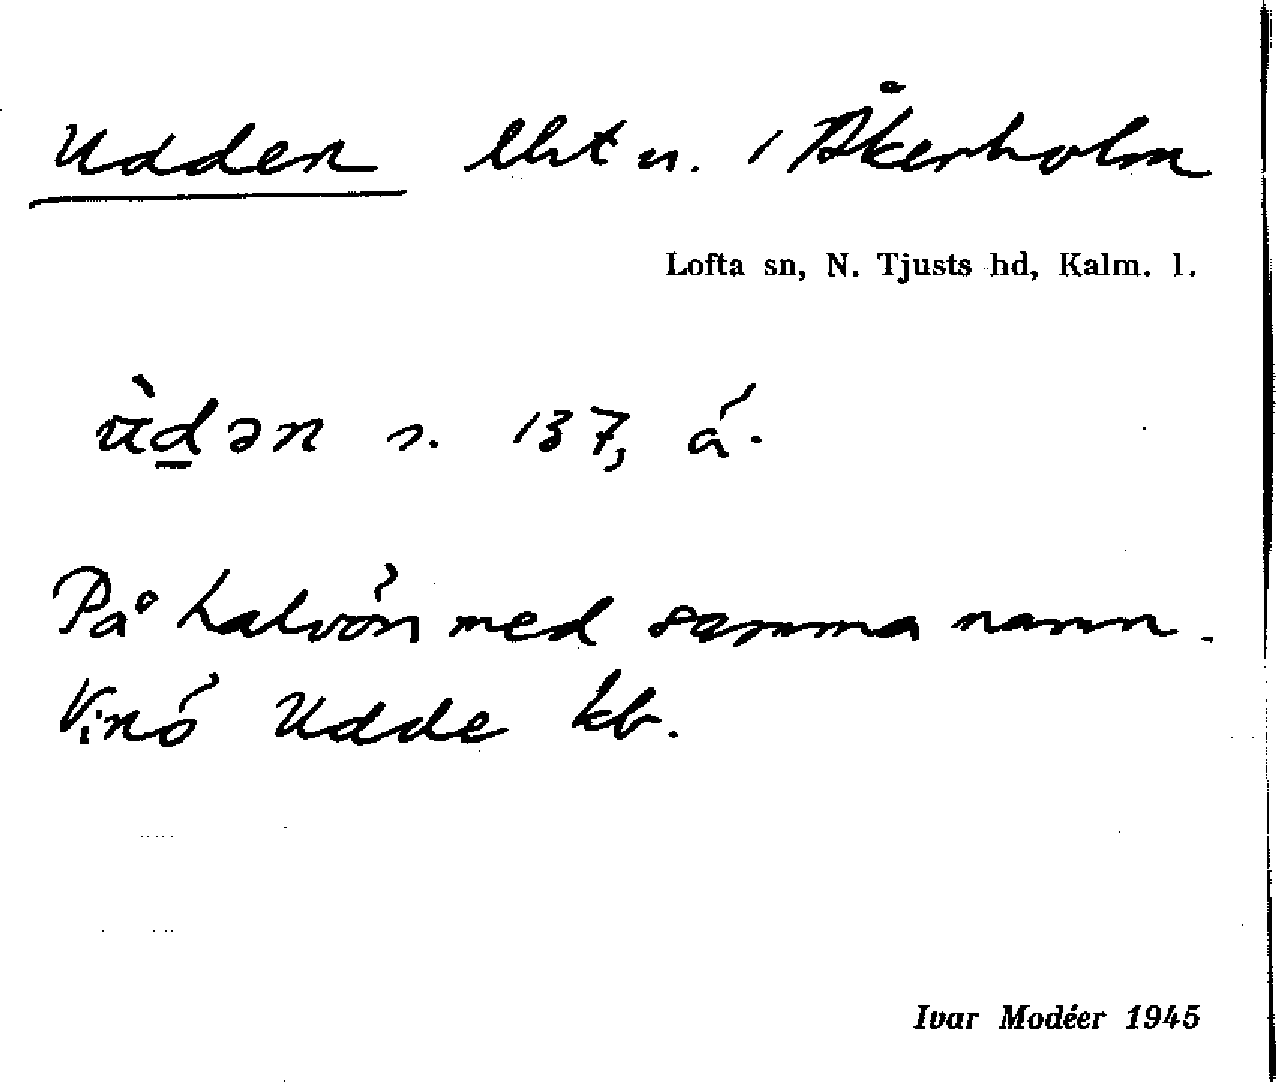 Udden lht u. i Åkerholm
Lofta sn, N. Tjusts hd, Kalm. l.
ùd̲ən s. 137, á.
På halvön med samma namn.
Vinö Udde kb.
Ivar Modéer 1945